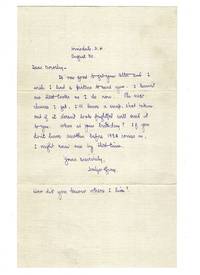 August 30.
Dear Dorothy -
It was good to get your letter and I
wish I had a picture to send you. I haven't
as I do now. The next
chance I get, I'll have a snap shot taken
and if it doesn't look frightful will send it
to you. When is your birthday? If you
don't have another before 1928 comes in,
I might have one by that time.
Yours sincerely,
Gray
How did you know others I